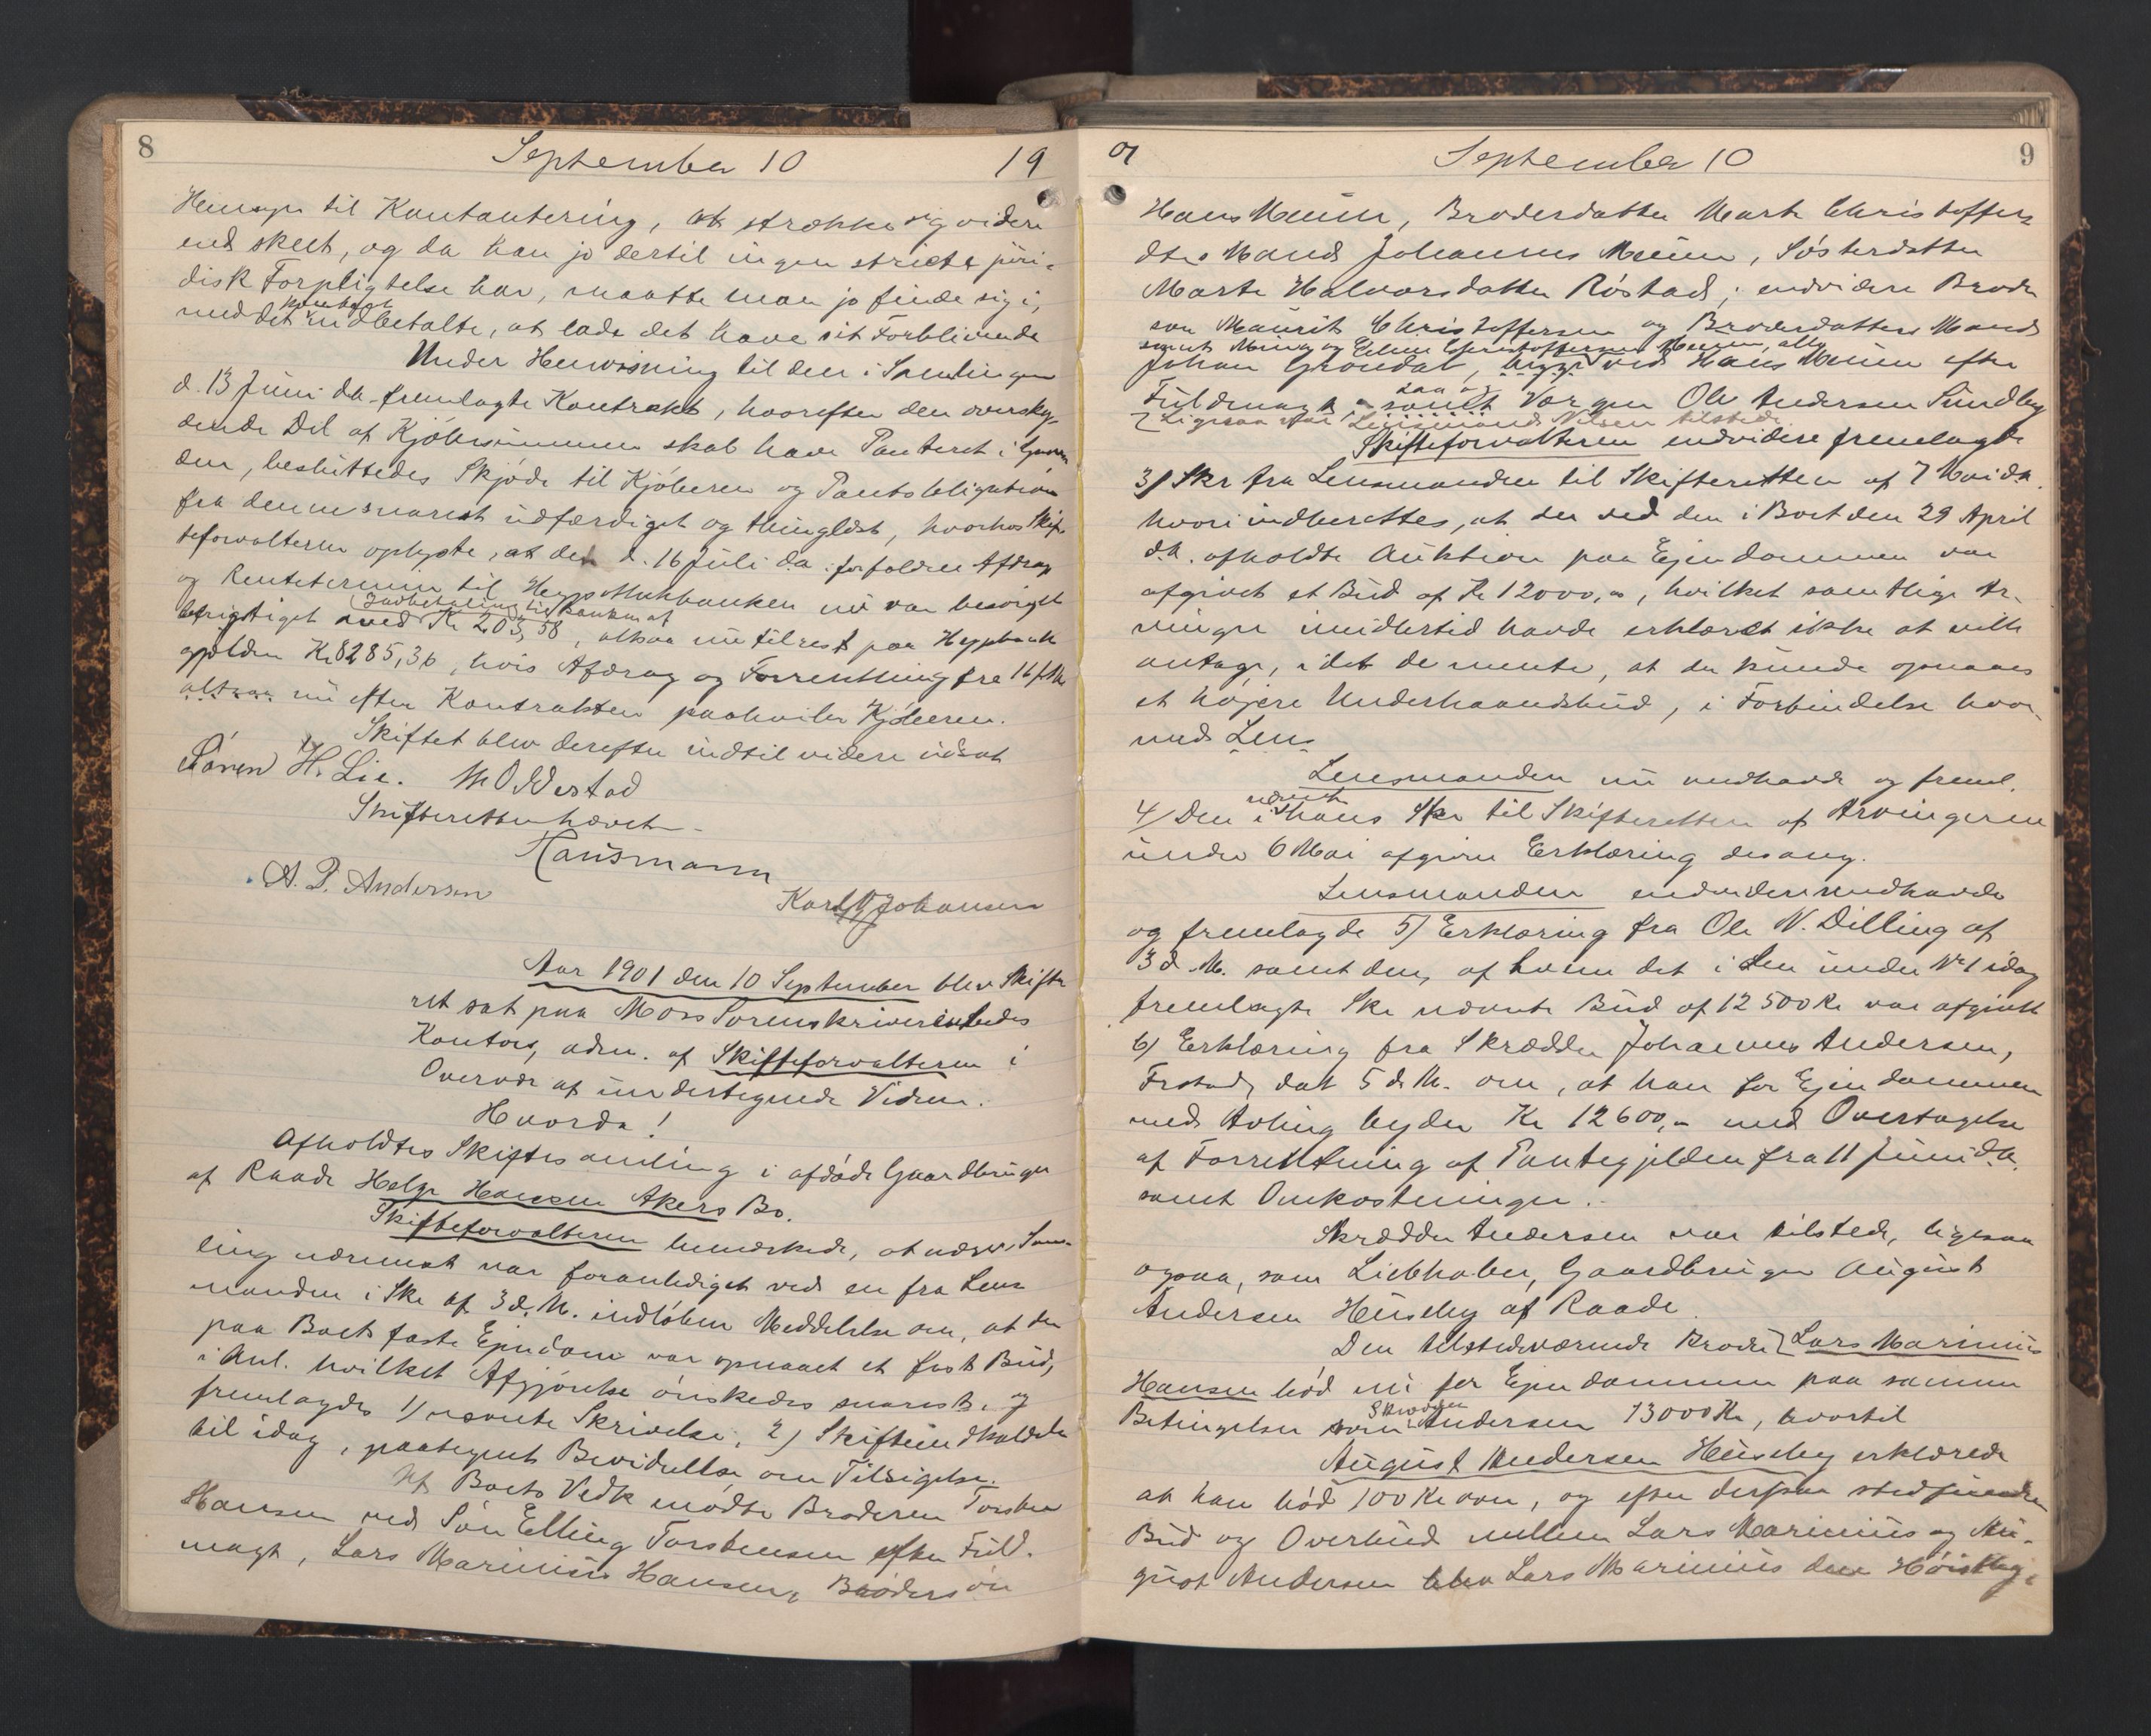 8 September 10 19
Hensyn til Kontantering, at strække sig videre
end skeet, og da han jo dertil ingen stricte juri-
disk Forpligtelse har, maatte man jo finde sig i,
med det indbetalte, at lade det have sit Forblivende
Under Henvisning til den i Samlingen
d. 13 Juni da. fremlagte Kontrakt, hvorefter den oversky-
dende Del af Kjøbesummen skal have Panteret i Gaar
den, besluttedes Skjøde til Kjøberen og Pantobligation
fra denne snarest udfærdiget og thinglæst, hvorhos Skif-
teforvalteren oplyste, at den d. 16 Juli d.a. forfaldne Afdrag
og Rentetermin til Hypothekbanken nu var besørget
Indbetaling til Banken af
berigtiget med Kr 203,58, altsaa nu tilrest paa Hypbank
gjælden Kr 8285,36, hvis Afdrag og Forrentning fra 16 f.M.
altsaa nu efter Kontrakten paahviler Kjøberen.
Skiftet blev derefter indtil videre udsat
Søren H. Lie. M O Westad
Skifteretten hævet
Hausmann
A. P. Andersen
Karl Johansen
Aar 1901 den 10 September blev Skifte
ret sat paa Moss Sorenskriverembedes
Kontor, adm. af Skifteforvalteren i
Overvær af undertegnede Vidner.
Hvorda!
Afholdtes Skiftesamling i afdøde Gaardbruger
af Raade Helge Hansen Akers Bo.
Skifteforvalteren bemærkede, at nærv. Sam-
ling nærmest var foranlediget ved en fra Lens
manden i Skr af 3 d. M. indløben Meddelelse om, at der
paa Boets faste Ejendom var opnaaet et fast Bud,
i Anl. hvilket Afgjørelse ønskedes snarest, og
fremlagdes 1) nævnte Skrivelse, 2) Skifteindkaldelse
til idag, paategnet Bevidnelse om Tilsigelse.
Af Boets Vedk mødte Broderen Torsten
Hansen ved Søn Elling Torstensen efter Fuld-
magt, Lars Marinius Hansen, Brodersøn
01 September 10 9
Hans Meum, Broderdatter Marte Christoffers
dtrs Mand Johannes Meum, Søsterdatter
Marte Halvorsdatter Røstad; endvidere Broder
søn Maurits Christoffersen og Broderdatters Mand
samt Mina og Eline Christoffersen Meum, alle
Johan Grøndal, begge ved Hans Meum efter
Fuldmagt samt Værgen Ole Andersen Sundby
Ligesaa var Lensmand Nilsen tilstede
Skifteforvalteren endvidere fremlagde
3) Skr fra Lensmanden til Skifteretten af 7 Mai d.a.
hvori indberettes, at der ved den i Boet den 29 April
d.a. afholdte Auktion paa Ejendommen var
afgivet et Bud af Kr 12000,00, hvilket samtlige Ar-
vinger imidlertid havde erklæret ikke at ville
antage, idet de mente, at der kunde opnaaes
et højere Underhaandsbud, i Forbindelse hvor-
med Lens
Lensmanden nu medhavde og freml.
4) Den i nævnte hans Skr til Skifteretten af Arvingerne
under 6 Mai afgivne Erklæring desang.
Lensmanden endvidere medhavde
og fremlagde 5) Erklæring fra Ole N. Dilling af
3 d. M. samt den, af hvem det i den under No 1 idag
fremlagte Skr nævnte Bud af 12500 Kr var afgivet
6) Erklæring fra Skrædder Johannes Andersen,
Frstad, dat 5 d. M. om, at han for Ejendommen
med Avling byder Kr 12600,- med Overtagelse
af Forrentning af Pantegjælden fra 11 Juni d.a.
samt Omkostninger.
Skrædder Andersen var tilstede, ligesaa
ogsaa, som Liebhaber, Gaardbruger August
Andersen Heuseby af Raade.
Den tilstedeværende Broder Lars Marinius
Hansen bød nu for Ejendommen paa samme
Betingelser som Skrædder Andersen 13000 Kr, hvortil
August Andersen Heuseby erklærede
at han bød 100 Kr over, og efter derpaa stedfunden
Bud og Overbud mellem Lars Marinius og Au-
gust Andersen blev Lars Marinius den Høistby-